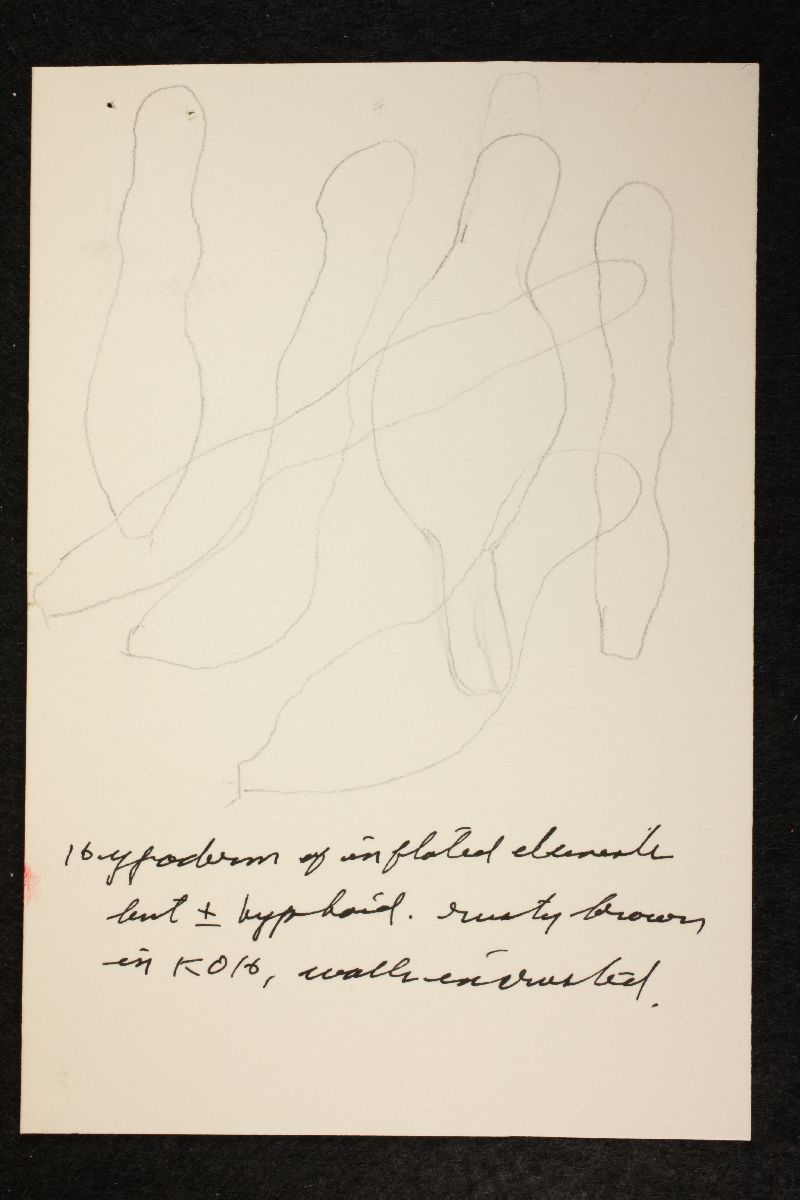 Hypoderm of inflated elements
but ± hyphoid. rusty brown
in KOH, walls incrusted.